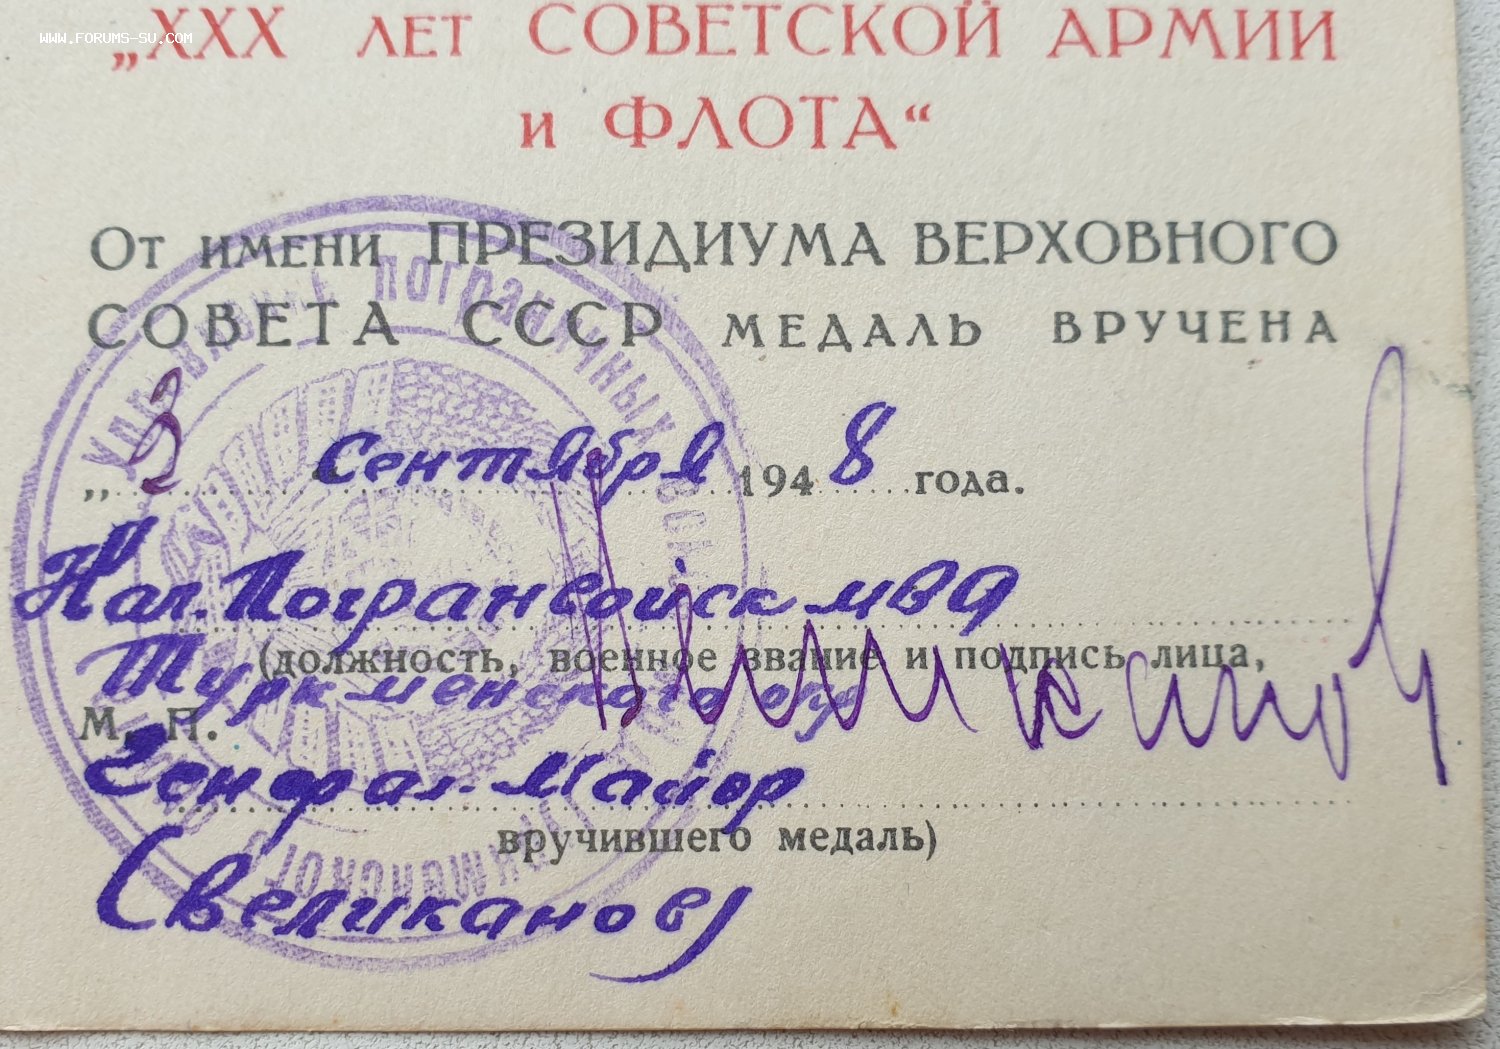 WWW.FORUMS-SU.COM
„XXX ЛЕТ СОВЕТСКОЙ АРМИИ
И ФЛОТА“
От имени ПРЕЗИДИУМА ВЕРХОВНОГО
СОВЕТА СССР МЕДАЛЬ ВРУЧЕНА
„ 3 Сентября 1948 года.
Нач. Погранвойск МВД
(должность, военное звание и подпись лица,
Туркменского окр
М. П.
Генерал-Майор
вручившего медаль)
(Великанов)
Великанов
Управление пограничных войск Туркменского